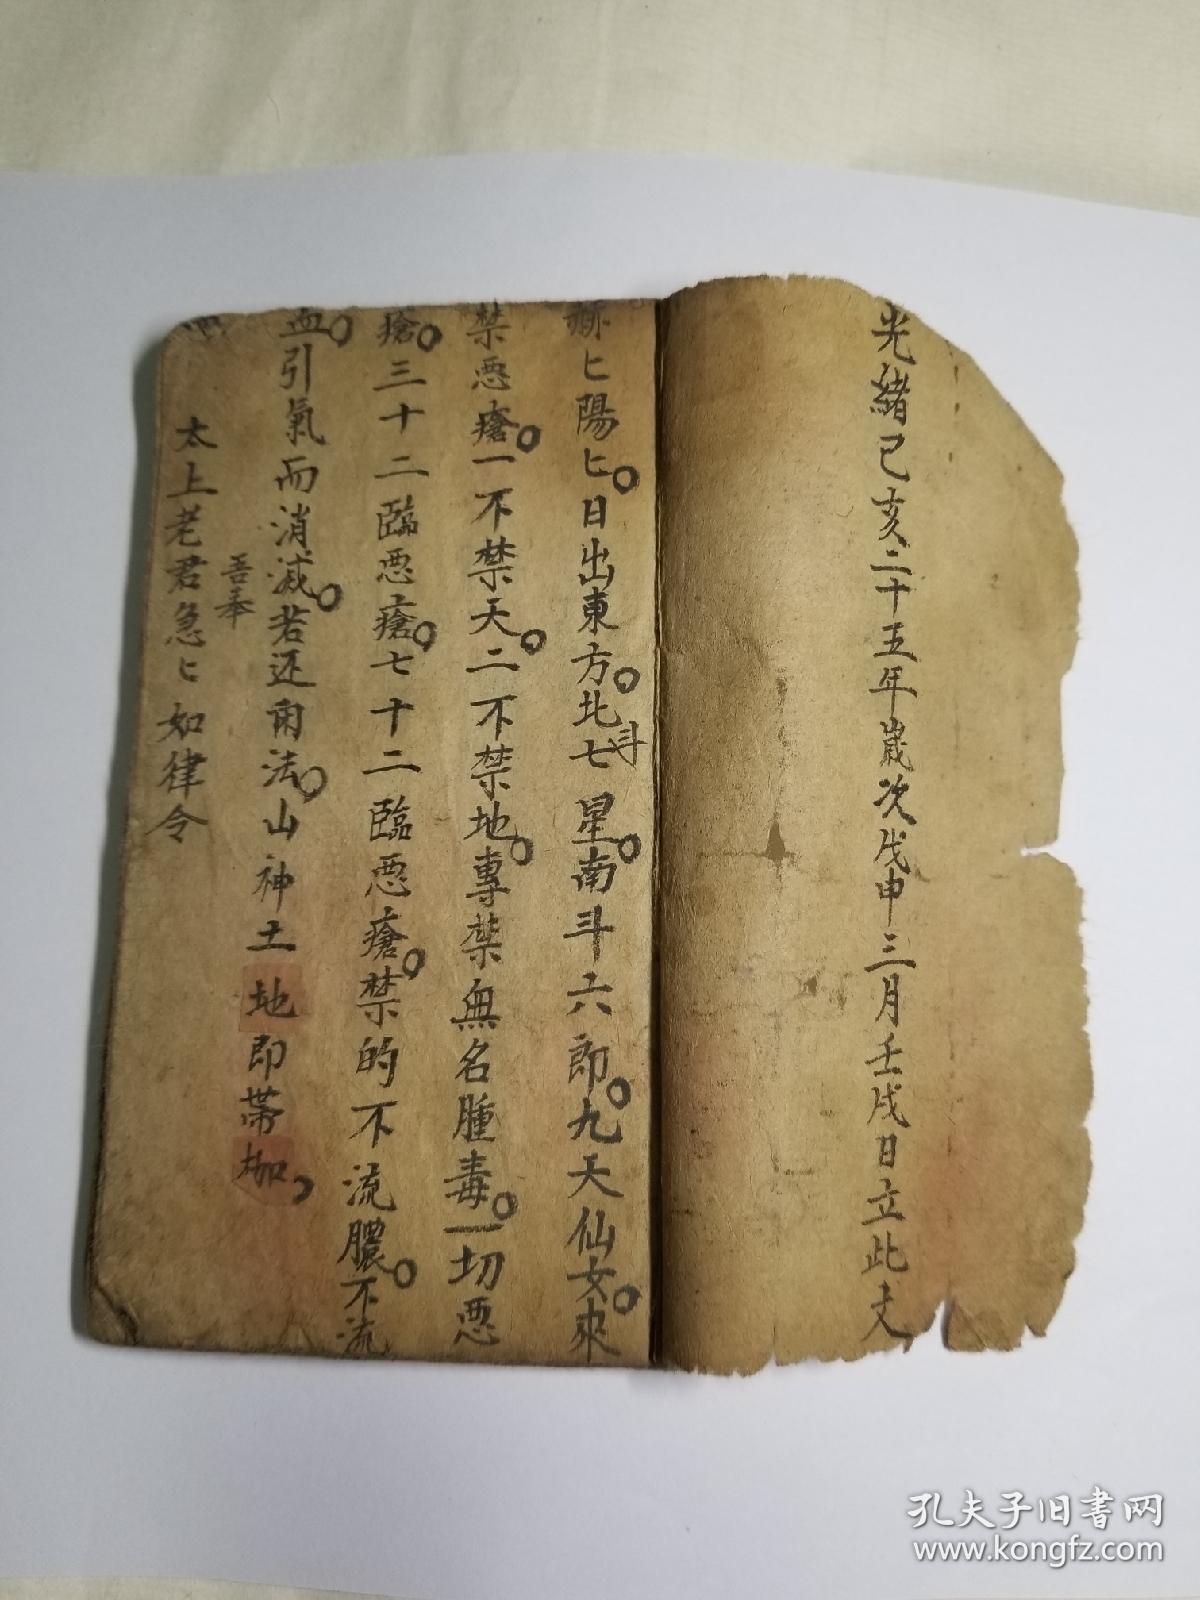 光緒己亥二十五年歲次戊申三月壬戌日立此
赫匕陽匕日出東方北斗七星南斗六郎九天仙女來
禁恶瘡一不禁天二不禁地專禁無名腫毒一切恶
瘡三十二臨恶瘡七十二臨恶瘡禁的不流膿不流
血引氣而消滅若还南法山神土地即帶枷
吾奉
太上老君急匕如律令
孔夫子旧书网
www.kongfz.com